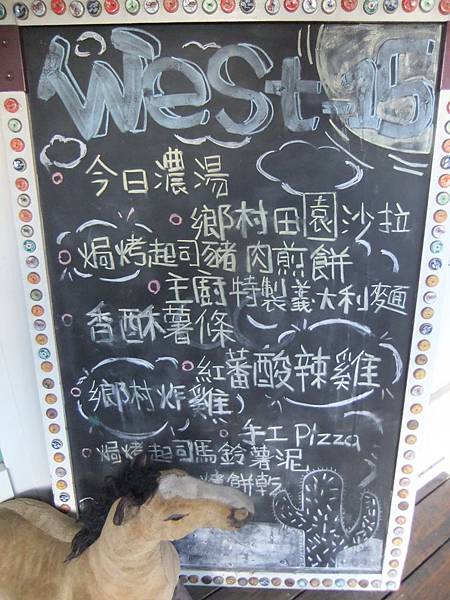 West-15
今日濃湯
鄉村田園沙拉
焗烤起司豬肉煎餅
主廚特製義大利麵
香酥薯條
紅蕃酸辣雞
鄉村炸雞
手工Pizza
焗烤起司馬鈴薯泥
烤餅乾